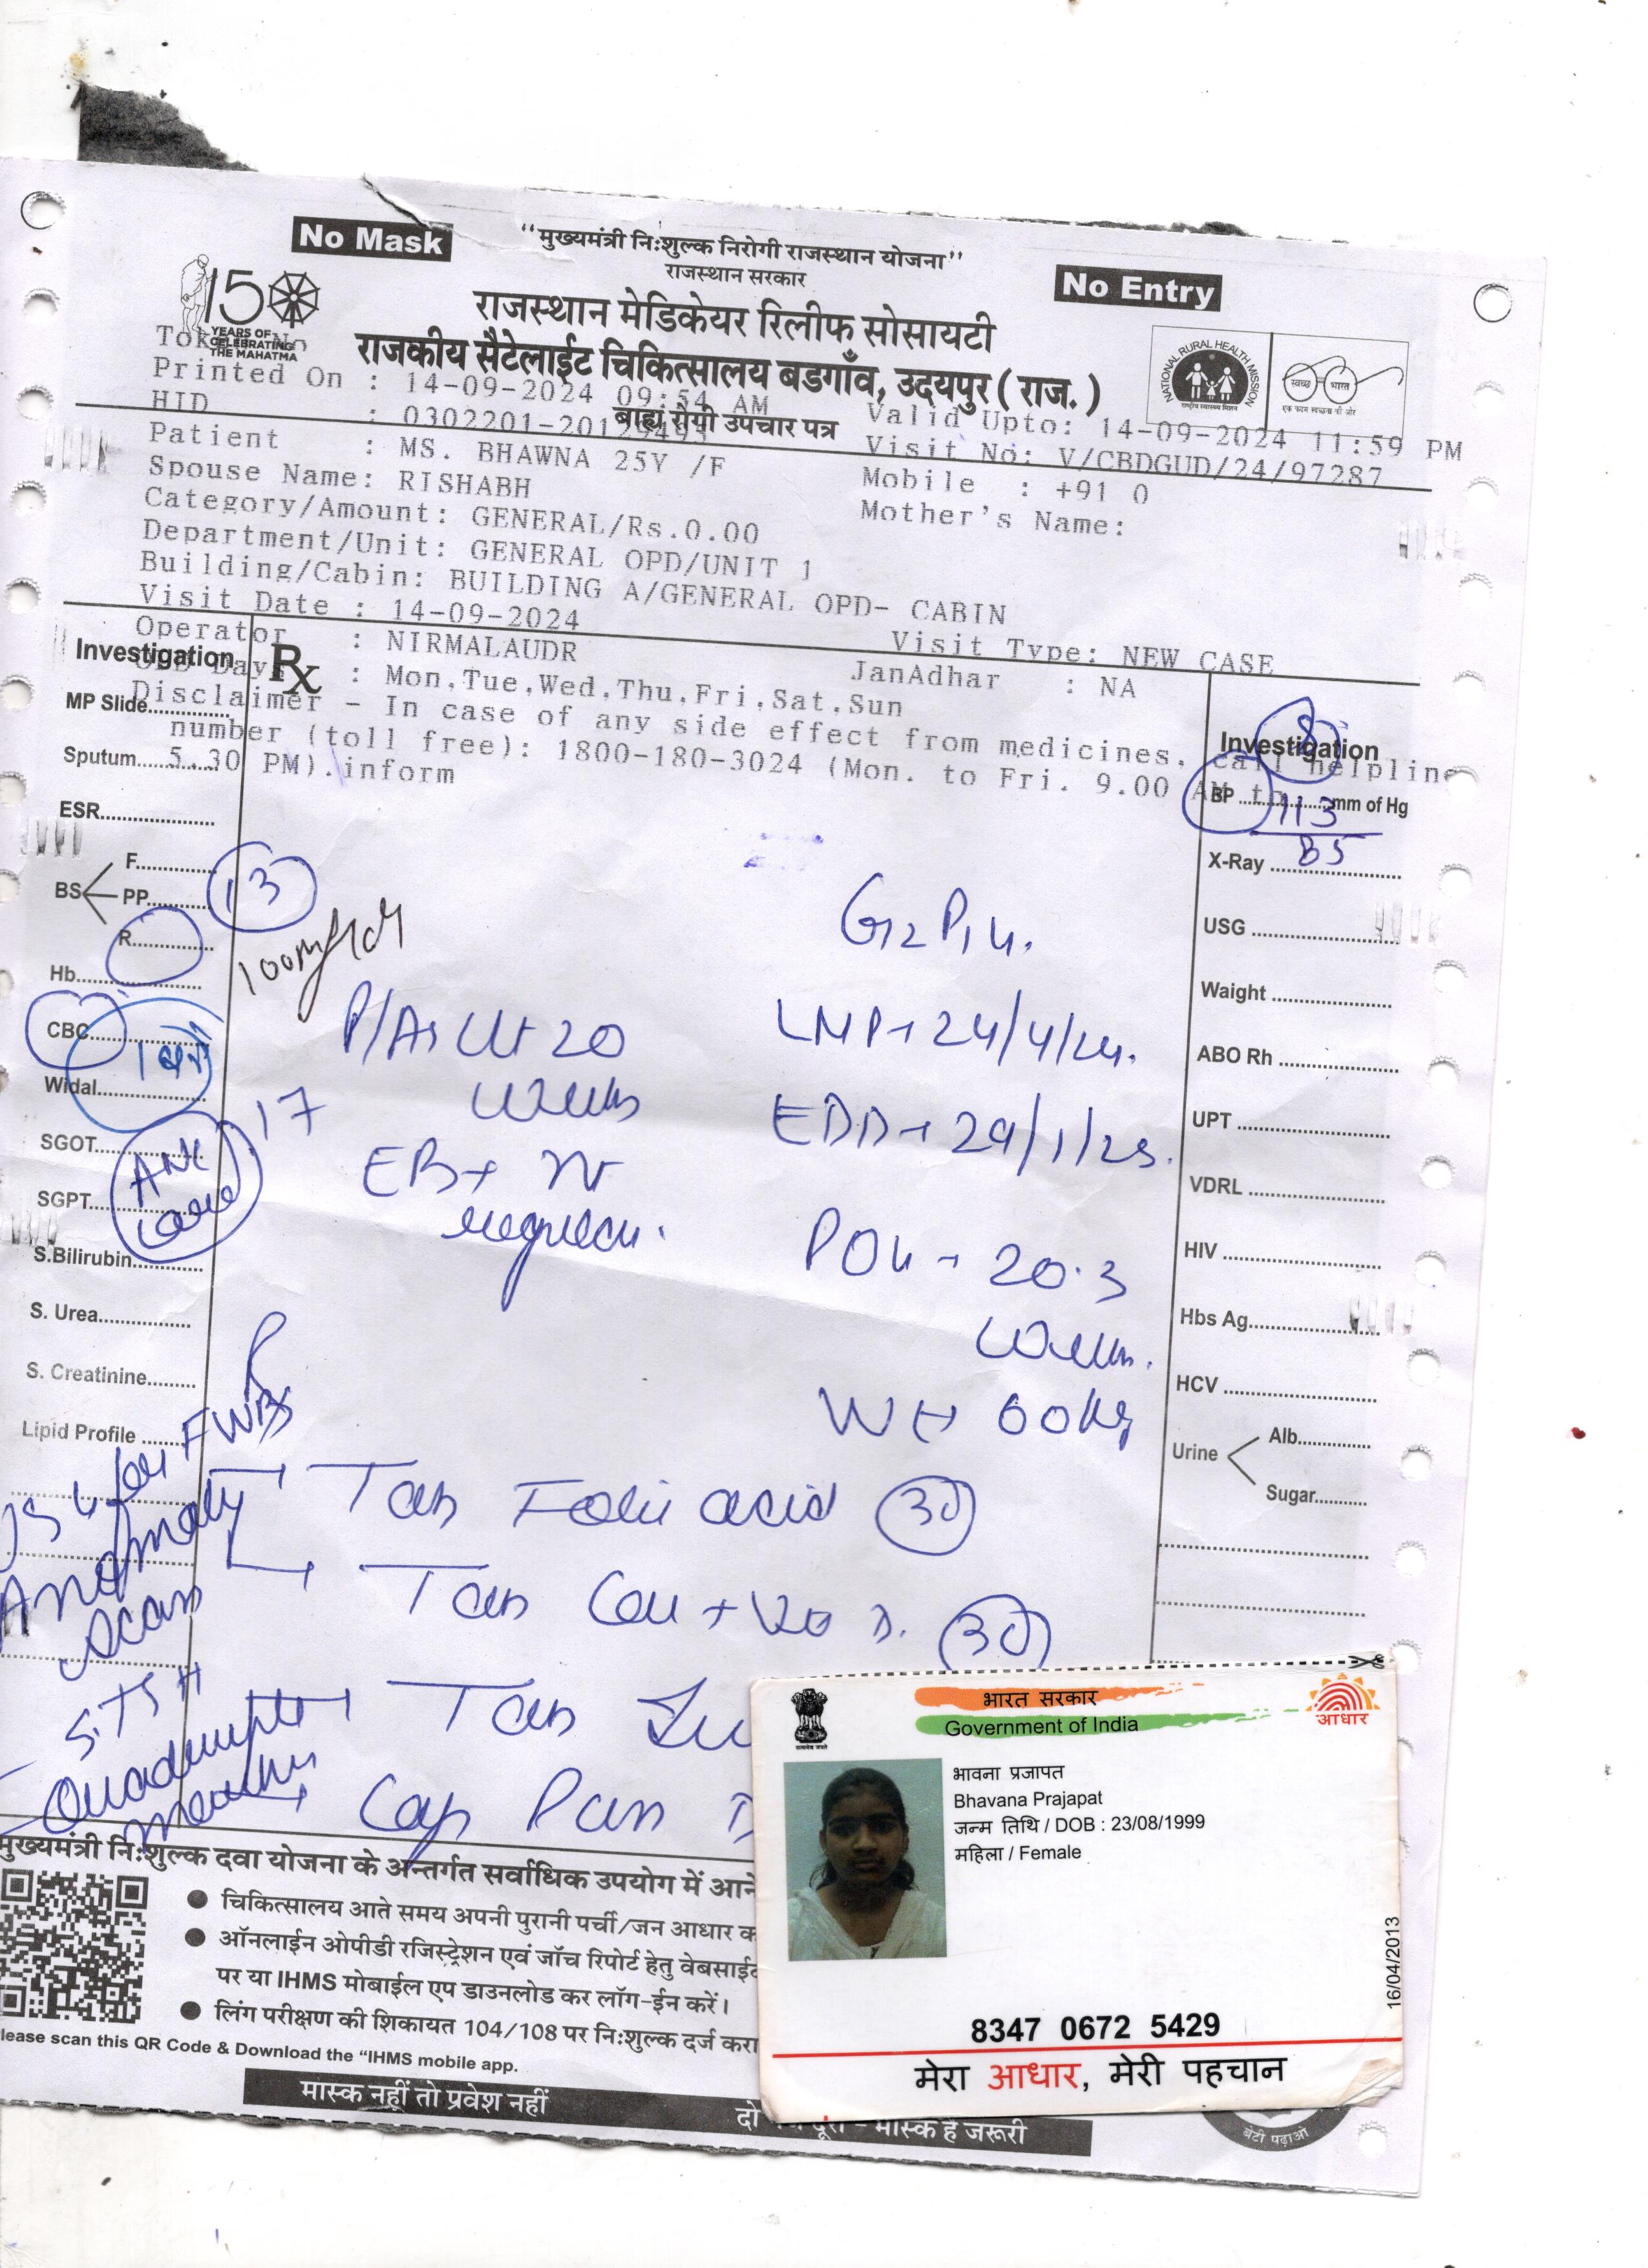 No Mask
"मुख्यमंत्री निःशुल्क निरोगी राजस्थान योजना"
राजस्थान सरकार
No Entry
राजस्थान मेडिकेयर रिलीफ सोसायटी
राजकीय सैटेलाईट चिकित्सालय बडगाँव, उदयपुर ( राज. )
150
YEARS OF
CELEBRATING
THE MAHATMA
NATIONAL RURAL HEALTH MISSION
राष्ट्रीय स्वास्थ्य मिशन
स्वच्छ भारत
एक कदम स्वच्छता की ओर
Token No
Printed On : 14-09-2024 09:54 AM
Valid Upto: 14-09-2024 11:59 PM
HID : 0302201-20129495
बाह्य रोगी उपचार पत्र
Visit No: V/CBDGUD/24/97287
Patient : MS. BHAWNA 25Y /F
Mobile : +91 0
Spouse Name: RISHABH
Mother's Name:
Category/Amount: GENERAL/Rs.0.00
Department/Unit: GENERAL OPD/UNIT 1
Building/Cabin: BUILDING A/GENERAL OPD- CABIN
Visit Date : 14-09-2024
Visit Type: NEW CASE
Operator : NIRMALAUDR
JanAdhar : NA
OPD Days : Mon,Tue,Wed,Thu,Fri,Sat,Sun
Disclaimer - In case of any side effect from medicines, call helpline
number (toll free): 1800-180-3024 (Mon. to Fri. 9.00 AM to
5.30 PM).inform
Investigation
Rx
MP Slide
Sputum
ESR
BS F
PP
R
13
100mg/dl
Hb
CBC
Widal
17
SGOT
ANC
SGPT
S.Bilirubin
S. Urea
S. Creatinine
Lipid Profile
G2P1L1
P/A 20
weeks
LMP 24/4/24
EDD 29/1/25
regular
POG 20.3
weeks
Wt 60kg
USG for FWB
Anomaly
scan
S.TSH
Quadruple
marker
Tab Folic acid 30
Tab Cal + Vit D. 30
Tab
Cap Pan D
Investigation
BP 113 mm of Hg
85
X-Ray
USG
Waight
ABO Rh
UPT
VDRL
HIV
Hbs Ag
HCV
Urine Alb
Sugar
भारत सरकार
Government of India
आधार
भावना प्रजापत
Bhavana Prajapat
जन्म तिथि / DOB : 23/08/1999
महिला / Female
16/04/2013
8347 0672 5429
मेरा आधार, मेरी पहचान
मुख्यमंत्री निःशुल्क दवा योजना के अन्तर्गत सर्वाधिक उपयोग में आने
चिकित्सालय आते समय अपनी पुरानी पर्ची/जन आधार
ऑनलाईन ओपीडी रजिस्ट्रेशन एवं जाँच रिपोर्ट हेतु वेबसाईट
पर या IHMS मोबाईल एप डाउनलोड कर लॉग-ईन करें।
लिंग परीक्षण की शिकायत 104/108 पर निःशुल्क दर्ज करा
lease scan this QR Code & Download the "IHMS mobile app.
मास्क नहीं तो प्रवेश नहीं
दो दूरी - मास्क है जरूरी
बेटी पढ़ाओ